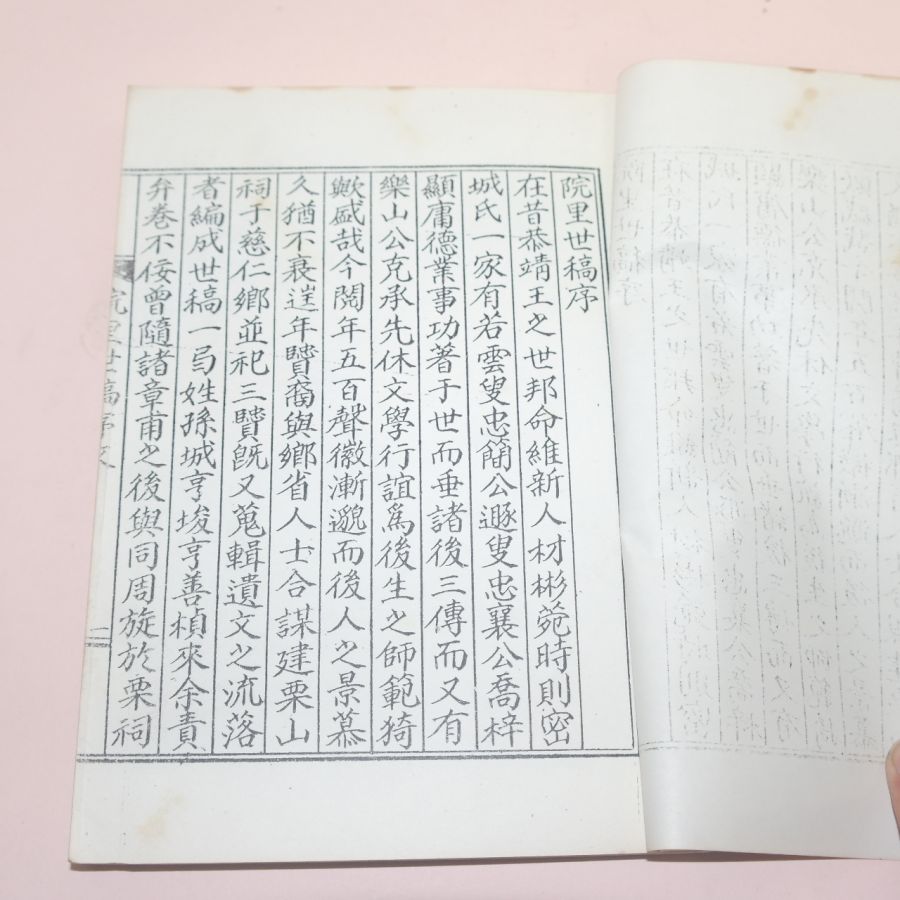 院里世稿序
在昔恭靖王之世邦命維新人材彬菀時則密
城氏一家有若雲叟忠簡公遯叟忠襄公喬梓
顯庸德業事功著于世而垂諸後三傳而又有
樂山公克承先休文學行誼爲後生之師範猗
歟盛哉今閱年五百聲徽漸邈而後人之景慕
久猶不衰逞年賢裔與鄕省人士合謀建栗山
祠于慈仁鄕並祀三賢旣又蒐輯遺文之流落
者編成世稿一弓姓孫城亨埈亨善楨來余責
弁卷不佞曾隨諸章甫之後與同周旋於栗祠
院里世稿序文
一